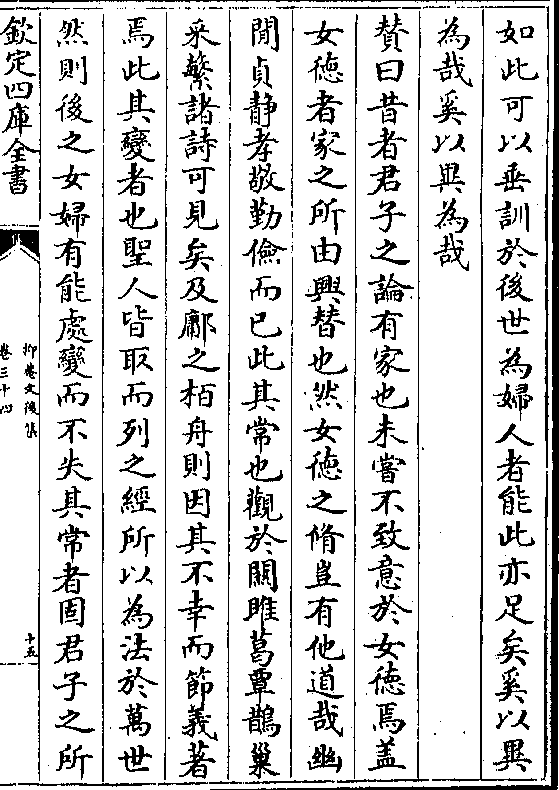 如此可以垂訓於後世為婦人者能此亦足矣奚以異
為哉奚以異為哉
贊曰昔者君子之論有家也未嘗不致意於女徳焉盖
女徳者家之所由興替也然女徳之脩豈有他道哉幽
閒貞静孝敬勤儉而已此其常也觀於關雎葛覃鵲巢
采蘩諸詩可見矣及鄘之栢舟則因其不幸而節義著
焉此其變者也聖人皆取而列之經所以為法於萬世
然則後之女婦有能處變而不失其常者固君子之所
欽定四庫全書
抑菴文後集
卷三十四
十五